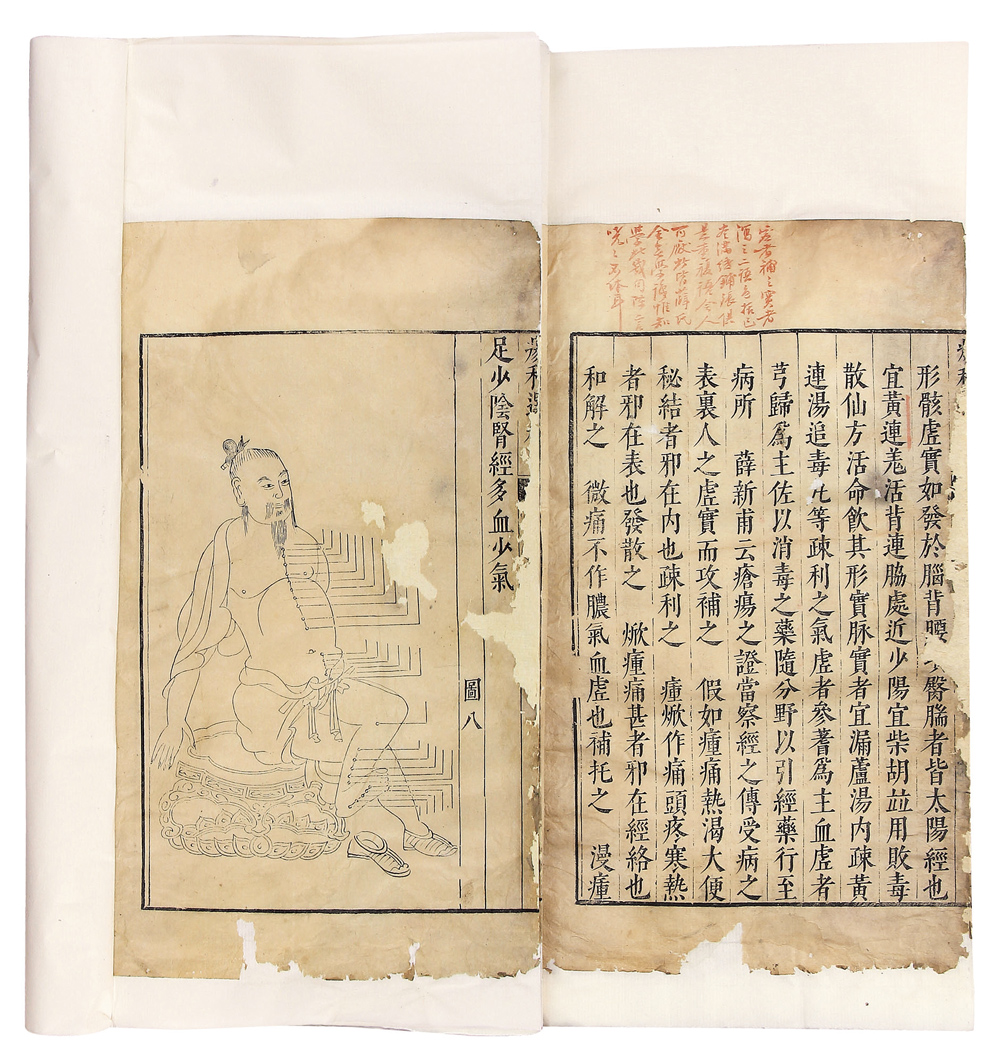 虛者補之實者
是重複語令人
可厭此皆薛氏
形骸虛實如發於腦背腰臀腨者皆太陽經也
宜黃連羗活背連脇處近少陽宜柴胡竝用敗毒
散仙方活命飲其形實脉實者宜漏蘆湯内疎黃
連湯追毒等疎利之氣虛者參蓍爲主血虛者
芎歸爲主佐以消毒之藥隨分野以引經藥行至
病所　薛新甫云瘡瘍之證當察經之傳受病之
表裏人之虛實而攻補之　假如瘇痛熱渴大便
秘結者邪在内也疎利之　瘇焮作痛頭疼寒熱
者邪在表也發散之　焮瘇痛甚者邪在經絡也
和解之　微痛不作膿氣血虛也補托之　漫瘇
足少陰腎經多血少氣
圖八